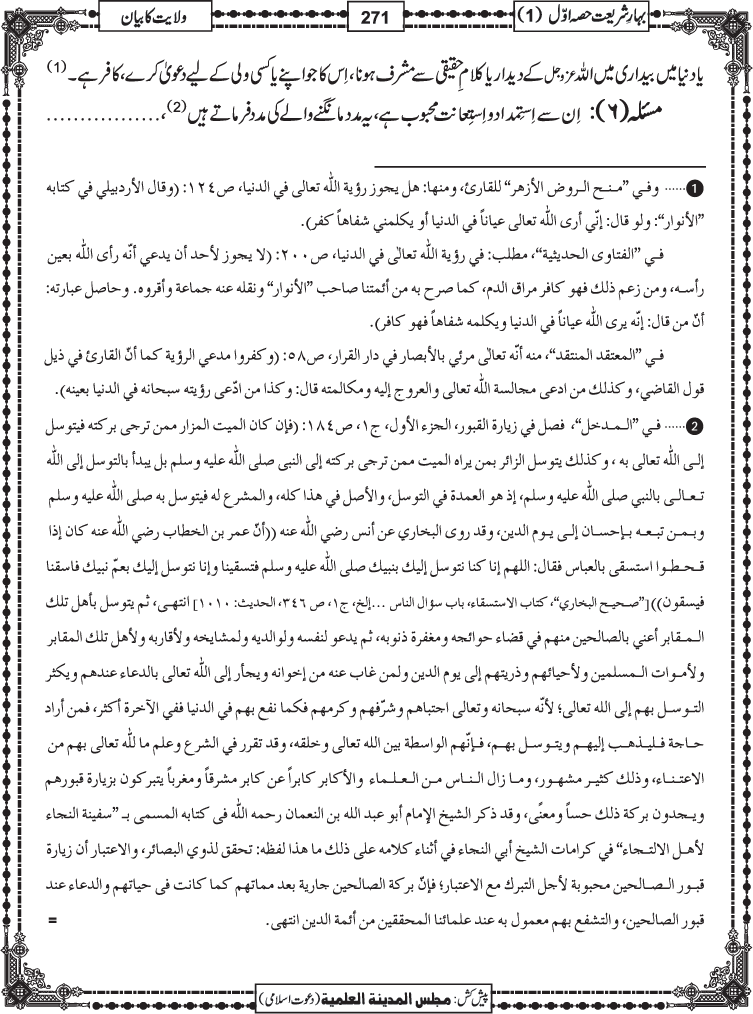 بہارِ شریعت حصہ اوّل (1)
271
ولایت کا بیان
یا دنیا میں بیداری میں اللہ عزوجل کے دیدار یا کلامِ حقیقی سے مشرف ہونا، اِس کا جو اپنے یا کسی ولی کے لیے دعویٰ کرے، کافر ہے۔ (1)
مسئلہ (۶): اِن سے اِستِمداد و اِستِعانت محبوب ہے، یہ مدد مانگنے والے کی مدد فرماتے ہیں (2)، .................
1 ...... وفي ”منح الروض الأزهر“ للقارئ، ومنها: هل يجوز رؤية الله تعالى في الدنيا، ص١٢٤: (وقال الأردبيلي في كتابه
”الأنوار“: ولو قال: إنّي أرى الله تعالى عياناً في الدنيا أو يكلمني شفاهاً كفر).
في ”الفتاوى الحديثية“، مطلب: في رؤية الله تعالٰى في الدنيا، ص٢٠٠: (لا يجوز لأحد أن يدعي أنّه رأى الله بعين
رأسه، ومن زعم ذلك فهو كافر مراق الدم، كما صرح به من أئمتنا صاحب ”الأنوار“ ونقله عنه جماعة وأقروه. وحاصل عبارته:
أنّ من قال: إنّه يرى الله عياناً في الدنيا ويكلمه شفاهاً فهو كافر).
في ”المعتقد المنتقد“، منه أنّه تعالٰى مرئي بالأبصار في دار القرار، ص٥٨: (وكفروا مدعي الرؤية كما أنّ القارئ في ذيل
قول القاضي، وكذلك من ادعى مجالسة الله تعالى والعروج إليه ومكالمته قال: وكذا من ادّعى رؤيته سبحانه في الدنيا بعينه).
2 ...... في ”المدخل“، فصل في زيارة القبور، الجزء الأول، ج١، ص١٨٤: (فإن كان الميت المزار ممن ترجى بركته فيتوسل
إلى الله تعالى به ، وكذلك يتوسل الزائر بمن يراه الميت ممن ترجى بركته إلى النبي صلى الله عليه وسلم بل يبدأ بالتوسل إلى الله
تعالى بالنبي صلى الله عليه وسلم، إذ هو العمدة في التوسل، والأصل في هذا كله، والمشرع له فيتوسل به صلى الله عليه وسلم
وبمن تبعه بإحسان إلى يوم الدين، وقد روى البخاري عن أنس رضي الله عنه ((أنّ عمر بن الخطاب رضي الله عنه كان إذا
قحطوا استسقى بالعباس فقال: اللهم إنا كنا نتوسل إليك بنبيك صلى الله عليه وسلم فتسقينا وإنا نتوسل إليك بعمّ نبيك فاسقنا
فيسقون))[”صحيح البخاري“، كتاب الاستسقاء، باب سؤال الناس ...إلخ، ج١، ص ٣٤٦، الحديث: ١٠١٠] انتهى، ثم يتوسل بأهل تلك
المقابر أعني بالصالحين منهم في قضاء حوائجه ومغفرة ذنوبه، ثم يدعو لنفسه ولوالديه ولمشايخه ولأقاربه ولأهل تلك المقابر
ولأموات المسلمين ولأحيائهم وذريتهم إلى يوم الدين ولمن غاب عنه من إخوانه ويجأر إلى الله تعالى بالدعاء عندهم ويكثر
التوسل بهم إلى الله تعالى؛ لأنّه سبحانه وتعالى اجتباهم وشرّفهم وكرمهم فكما نفع بهم في الدنيا ففي الآخرة أكثر، فمن أراد
حاجة فليذهب إليهم ويتوسل بهم، فإنّهم الواسطة بين الله تعالى وخلقه، وقد تقرر في الشرع وعلم ما لله تعالى بهم من
الاعتناء، وذلك كثير مشهور، وما زال الناس من العلماء والأكابر كابراً عن كابر مشرقاً ومغرباً يتبركون بزيارة قبورهم
ويجدون بركة ذلك حساً ومعنًى، وقد ذكر الشيخ الإمام أبو عبد الله بن النعمان رحمه الله في كتابه المسمى بـ ”سفينة النجاء
لأهل الالتجاء“ في كرامات الشيخ أبي النجاء في أثناء كلامه على ذلك ما هذا لفظه: تحقق لذوي البصائر، والاعتبار أن زيارة
قبور الصالحين محبوبة لأجل التبرك مع الاعتبار؛ فإنّ بركة الصالحين جارية بعد مماتهم كما كانت فى حياتهم والدعاء عند
قبور الصالحين، والتشفع بهم معمول به عند علمائنا المحققين من أئمة الدين انتهى. =
پیش کش: مجلس المدینة العلمیة (دعوت اسلامی)